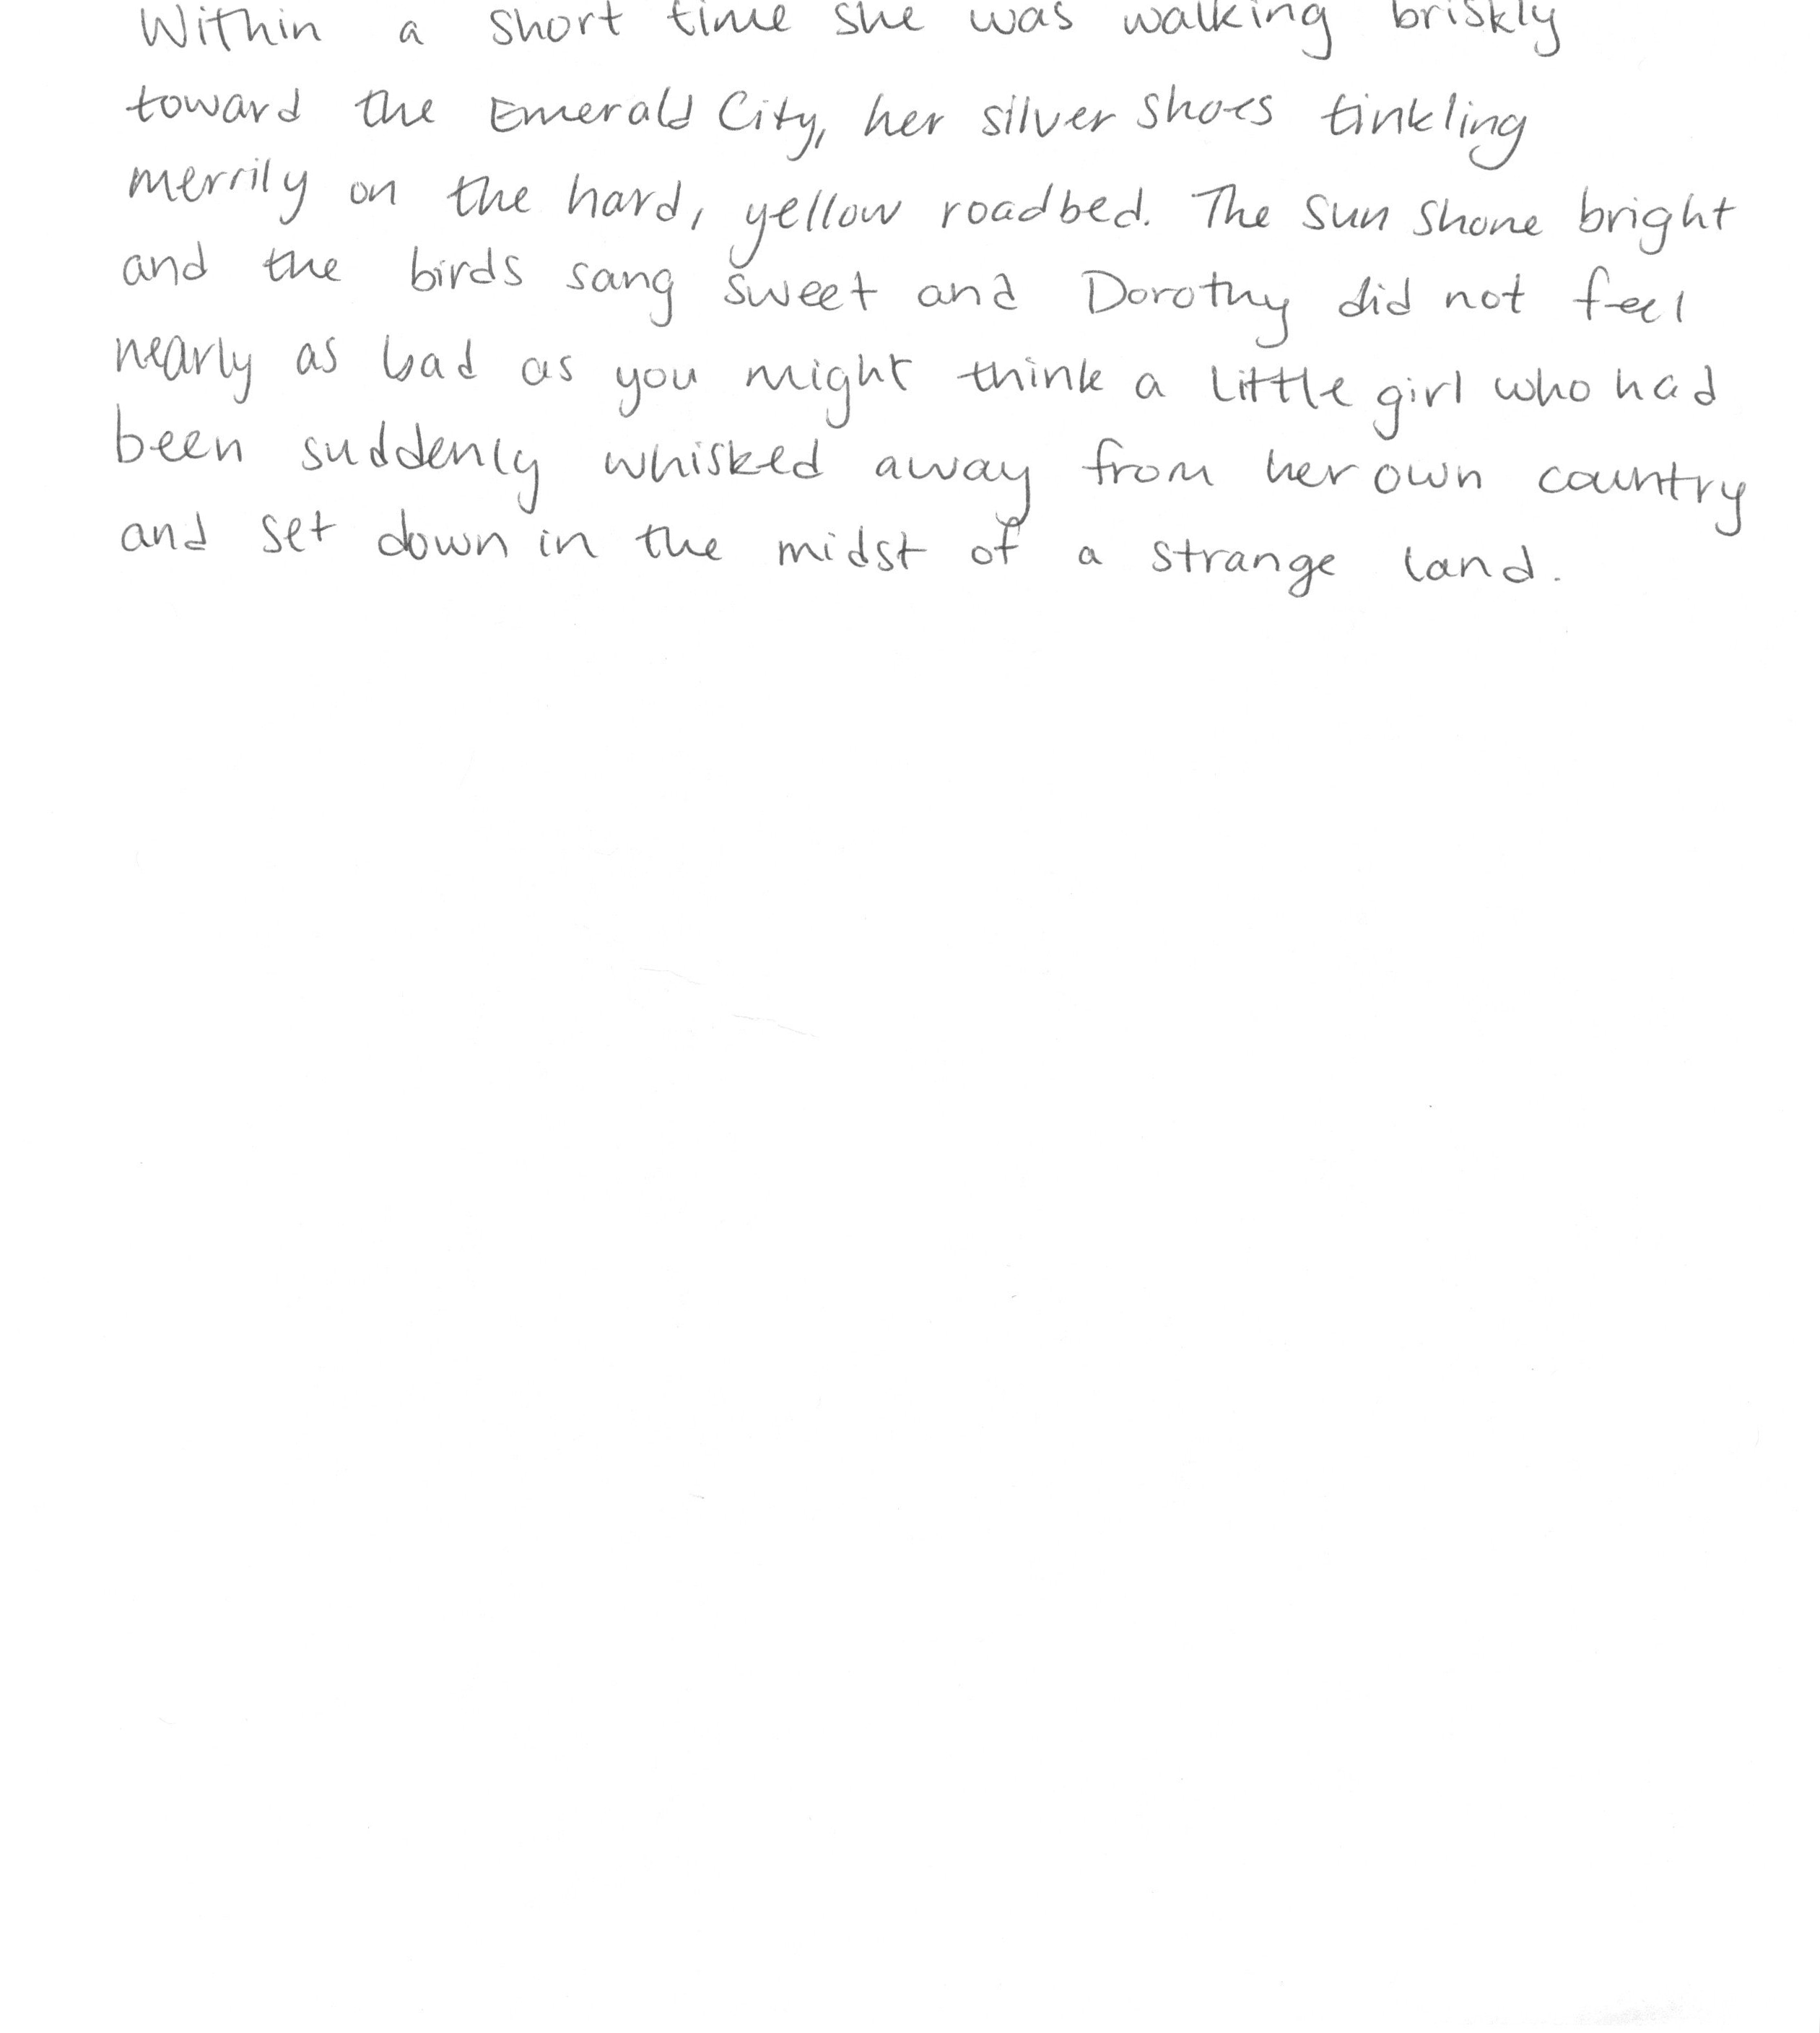 Within a short time she was walking briskly
toward the Emerald City, her silver shoes tinkling
merrily on the hard, yellow roadbed. The sun shone bright
and the birds sang sweet and Dorothy did not feel
nearly as bad as you might think a little girl who had
been suddenly whisked away from her own country
and set down in the midst of a strange land.